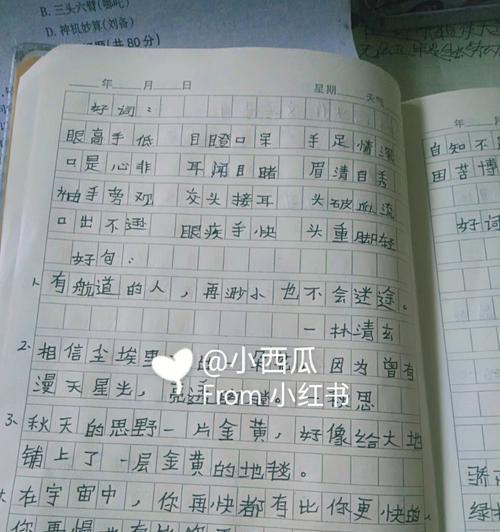 B. 三头六臂(哪吒)
D. 神机妙算(刘备)
(共 80分)
年 月 日 星期 天气
好词:
眼高手低 目瞪口呆 手足情深
口是心非 耳闻目睹 眉清目秀
袖手旁观 交头接耳 头破血流
口出不逊 眼疾手快 头重脚轻
好句:
1、有航道的人,再渺小也不会迷途。
—林清玄
2、相信尘埃里的 因为曾有
漫天星光,
3、秋天的思野一片金黄,好像给大地
铺上了一层金黄的地毯。
在宇宙中,你再快都有比你更快的,
你再慢也有比你
年 月
自知不
困苦博
好词
骄
绿
@小西瓜
From 小红书